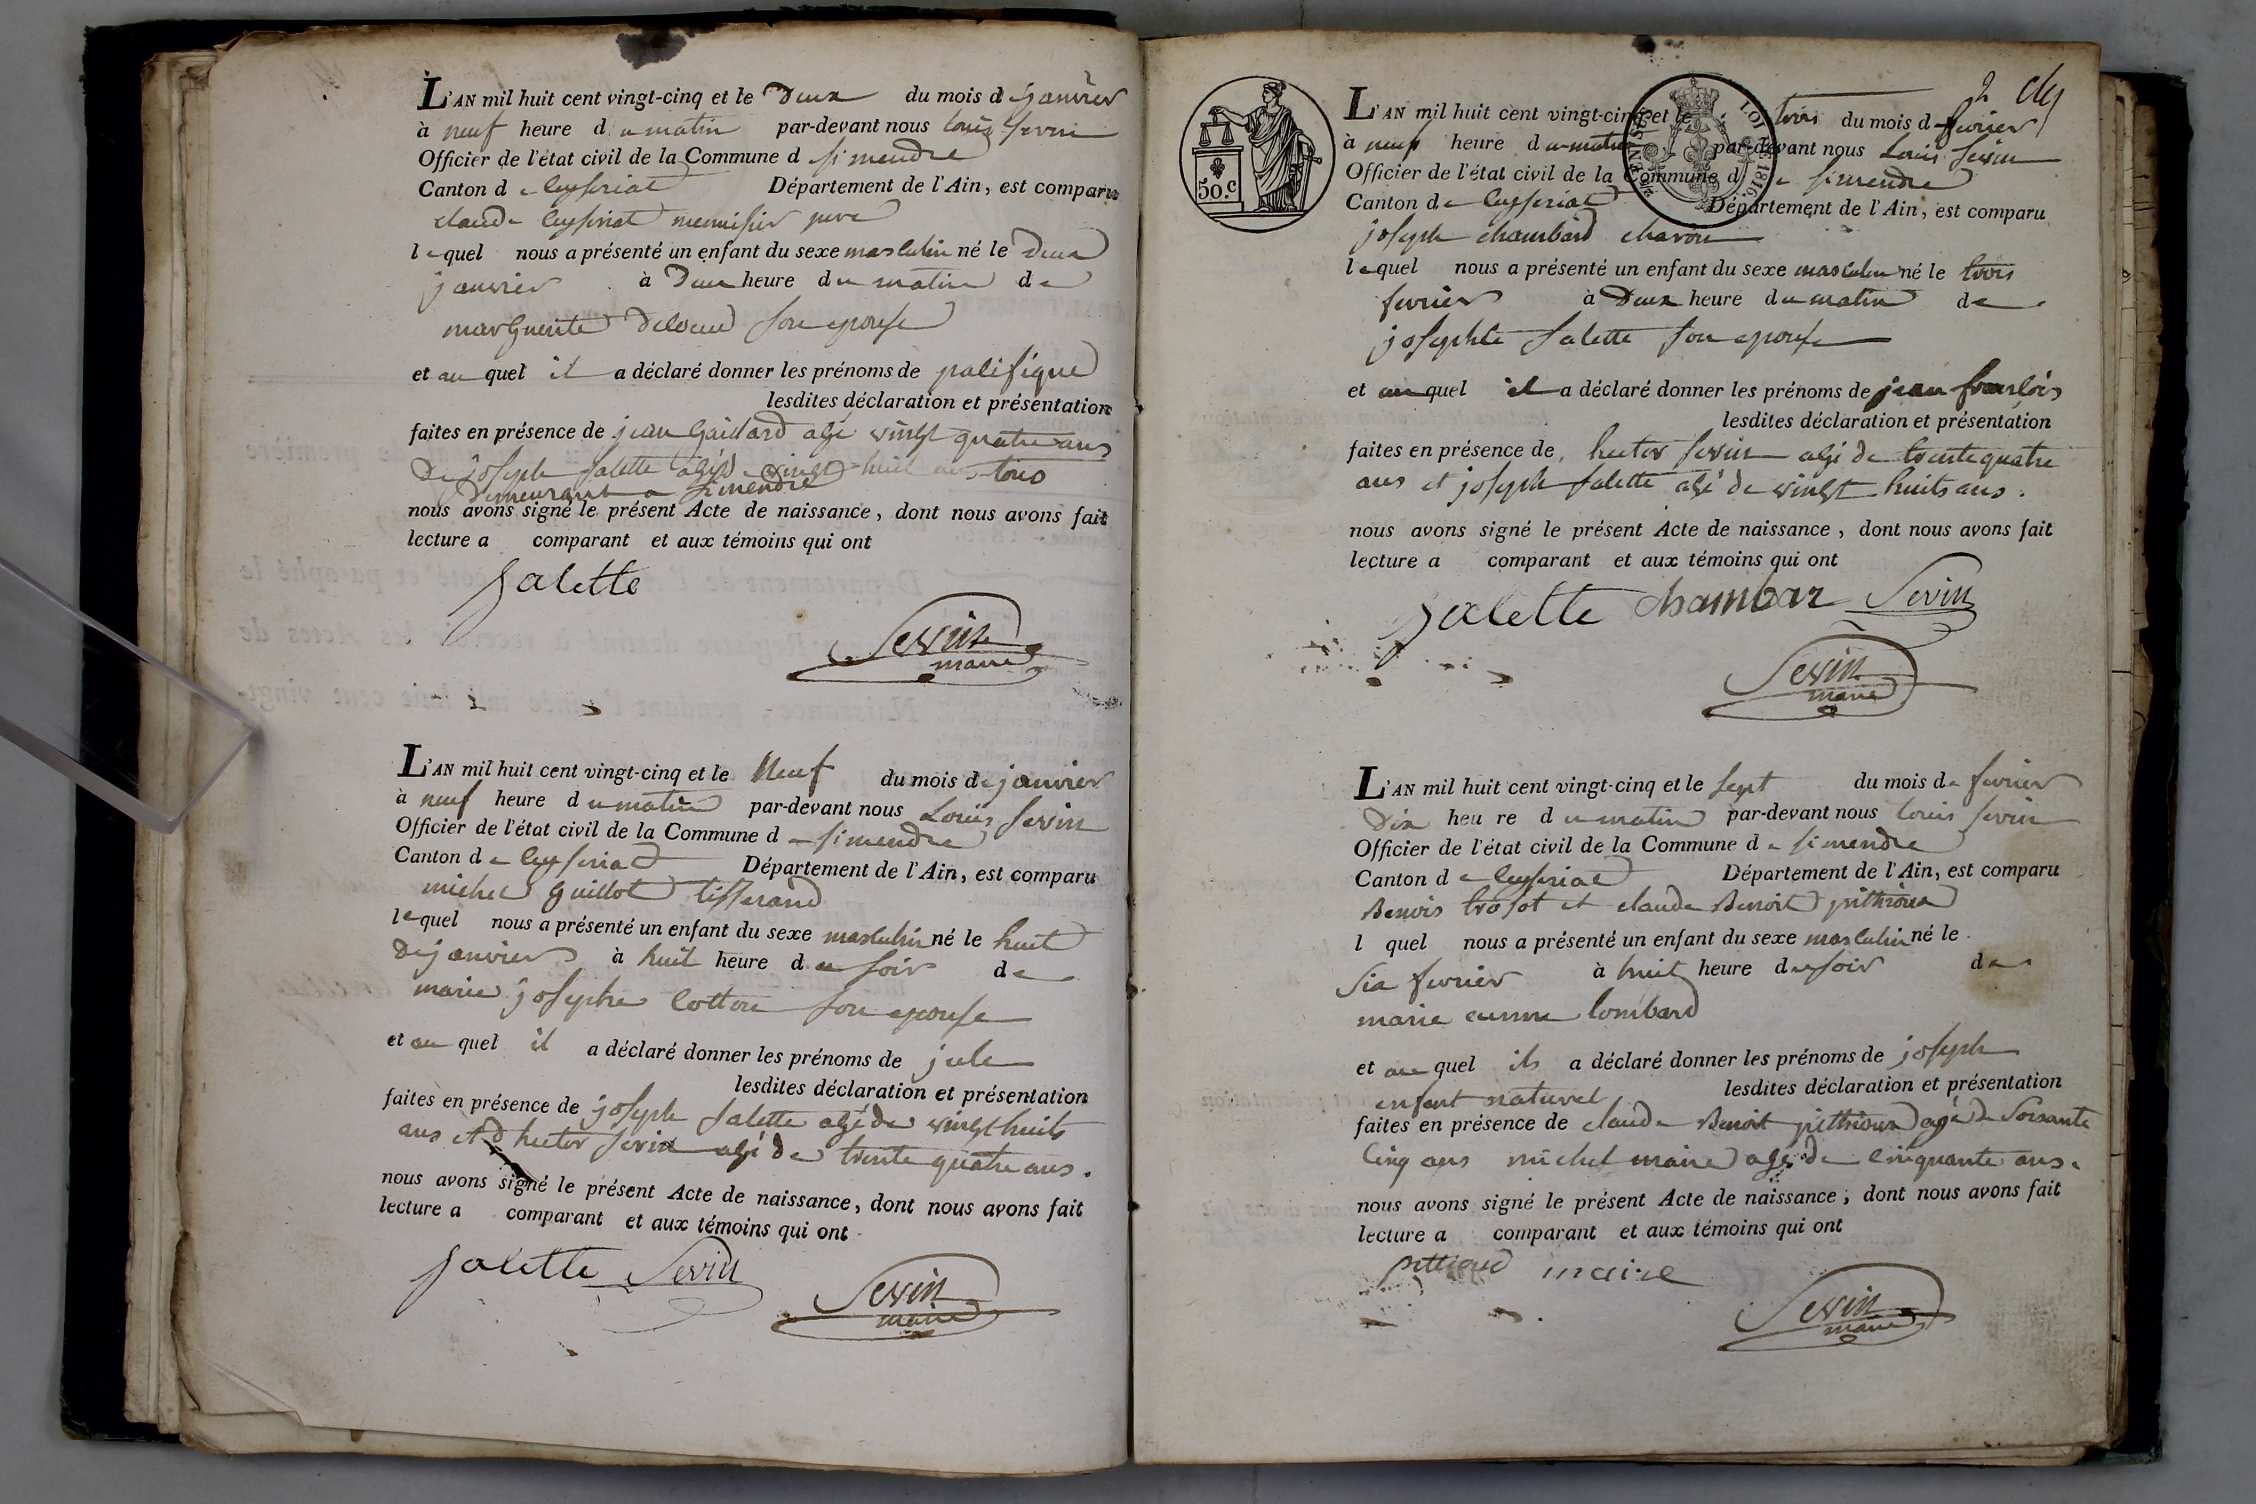 L'AN mil huit cent vingt-cinq et le Deux du mois d janvier
à neuf heure du matin par-devant nous Louis Sevin
Officier de l'état civil de la Commune d Simendre
Canton de Ceyseriat Département de l'Ain, est comparu
claude Ceyseriat menuisier
lequel nous a présenté un enfant du sexe masculin né le Deux
janvier à Deux heure du matin de
marguerite son epouse
et au quel il a déclaré donner les prénoms de palifique
lesdites déclaration et présentation
faites en présence de jean Gaillard agé vingt quatre ans
De joseph Salette agé de vingt huit ans tous
Demeurant a Simendre
nous avons signé le présent Acte de naissance, dont nous avons fait
lecture a comparant et aux témoins qui ont
Salette
Sevin
maire
L'AN mil huit cent vingt-cinq et le Neuf du mois de janvier
à neuf heure du matin par-devant nous Louis Sevin
Officier de l'état civil de la Commune de Simendre
Canton de Ceyseriat Département de l'Ain, est comparu
michel Guillot tisserand
lequel nous a présenté un enfant du sexe masculin né le huit
De janvier à huit heure du soir de
marie josephe Cotton son epouse
et au quel il a déclaré donner les prénoms de jule
lesdites déclaration et présentation
faites en présence de joseph Salette agé de vingt huits
ans et d hector Sevin agé de trente quatre ans.
nous avons signé le présent Acte de naissance, dont nous avons fait
lecture a comparant et aux témoins qui ont
Salette Sevin
Sevin
maire
2
50.c
LOI DE 1816
L'AN mil huit cent vingt-cinq et le trois du mois de fevrier
à neuf heure du matin par-devant nous Louis Sevin
Officier de l'état civil de la Commune de Simendre
Canton de Ceyseriat Département de l'Ain, est comparu
joseph chambard charon
lequel nous a présenté un enfant du sexe masculin né le trois
fevrier à Deux heure du matin de
josephte Salette son epouse
et au quel il a déclaré donner les prénoms de jean francois
lesdites déclaration et présentation
faites en présence de hector Sevin agé de trente quatre
ans et joseph Salette agé de vingt huits ans.
nous avons signé le présent Acte de naissance, dont nous avons fait
lecture a comparant et aux témoins qui ont
Salette Chambar Sevin
Sevin
maire
L'AN mil huit cent vingt-cinq et le Sept du mois de fevrier
Dix heure du matin par-devant nous Louis Sevin
Officier de l'état civil de la Commune de Simendre
Canton de Ceyseriat Département de l'Ain, est comparu
Benois trosot et claude Benoit pithioud
l quel nous a présenté un enfant du sexe masculin né le
Six fevrier à huit heure du soir de
marie anne Lombard
et au quel ils a déclaré donner les prénoms de joseph
enfant naturel lesdites déclaration et présentation
faites en présence de claude Benoit pithioud agé de Soixante
Cinq ans michel maire agé de cinquante ans.
nous avons signé le présent Acte de naissance, dont nous avons fait
lecture a comparant et aux témoins qui ont
pittioud maire
Sevin
maire